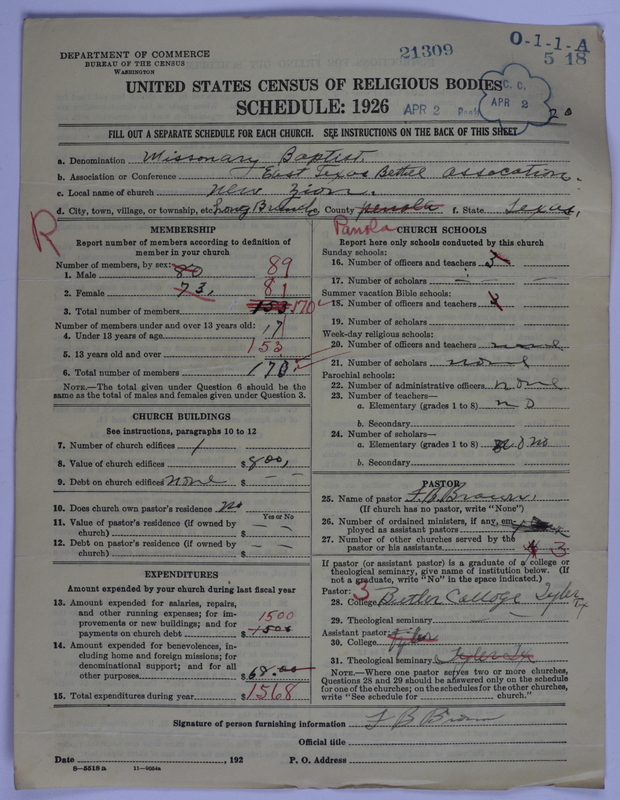 DEPARTMENT OF COMMERCE
BUREAU OF THE CENSUS
WASHINGTON
21309
O-1-1-A
5 18
UNITED STATES CENSUS OF RELIGIOUS BODIES
SCHEDULE: 1926
APR 2
C. C.
APR 2
FILL OUT A SEPARATE SCHEDULE FOR EACH CHURCH. SEE INSTRUCTIONS ON THE BACK OF THIS SHEET
a. Denomination Missonary Baptist.
b. Association or Conference East Texas Bethel assocation.
c. Local name of church new zion.
d. City, town, village, or township, etc. Long Branch, County penola f. State Texas,
R
Panola
MEMBERSHIP
Report number of members according to definition of member in your church
Number of members, by sex:
1. Male 80 89
2. Female 73, 81
3. Total number of members 153 170
Number of members under and over 13 years old:
4. Under 13 years of age 17
5. 13 years old and over 153
6. Total number of members 170
NOTE.—The total given under Question 6 should be the same as the total of males and females given under Question 3.
CHURCH BUILDINGS
See instructions, paragraphs 10 to 12
7. Number of church edifices 1
8. Value of church edifices $ 800,
9. Debt on church edifices none $ – –
10. Does church own pastor's residence? no
Yes or No
11. Value of pastor's residence (if owned by church) $ – –
12. Debt on pastor's residence (if owned by church) $ – –
EXPENDITURES
Amount expended by your church during last fiscal year
13. Amount expended for salaries, repairs, and other running expenses; for improvements or new buildings; and for payments on church debt $ 1500 1500
14. Amount expended for benevolences, including home and foreign missions; for denominational support; and for all other purposes $ 68.00
15. Total expenditures during year. $ 1568
CHURCH SCHOOLS
Report here only schools conducted by this church
Sunday schools:
16. Number of officers and teachers 5
17. Number of scholars
Summer vacation Bible schools:
18. Number of officers and teachers 3
19. Number of scholars
Week-day religious schools:
20. Number of officers and teachers none
21. Number of scholars none
Parochial schools:
22. Number of administrative officers none
23. Number of teachers—
a. Elementary (grades 1 to 8) no
b. Secondary
24. Number of scholars—
a. Elementary (grades 1 to 8) no
b. Secondary
PASTOR
25. Name of pastor F. B. Brown.
(If church has no pastor, write "None")
26. Number of ordained ministers, if any, employed as assistant pastors
27. Number of other churches served by the pastor or his assistants 3
If pastor (or assistant pastor) is a graduate of a college or theological seminary, give name of institution below. (If not a graduate, write "No" in the space indicated.)
Pastor: 3
28. College Butler College Tyler Tx
29. Theological seminary —
Assistant pastor:
30. College Tyler
31. Theological seminary
NOTE.—Where one pastor serves two or more churches, Questions 28 and 29 should be answered only on the schedule for one of the churches; on the schedules for the other churches, write "See schedule for church."
Signature of person furnishing information F B Brown
Official title
Date , 192 P. O. Address
8—5518 a 11—9054a